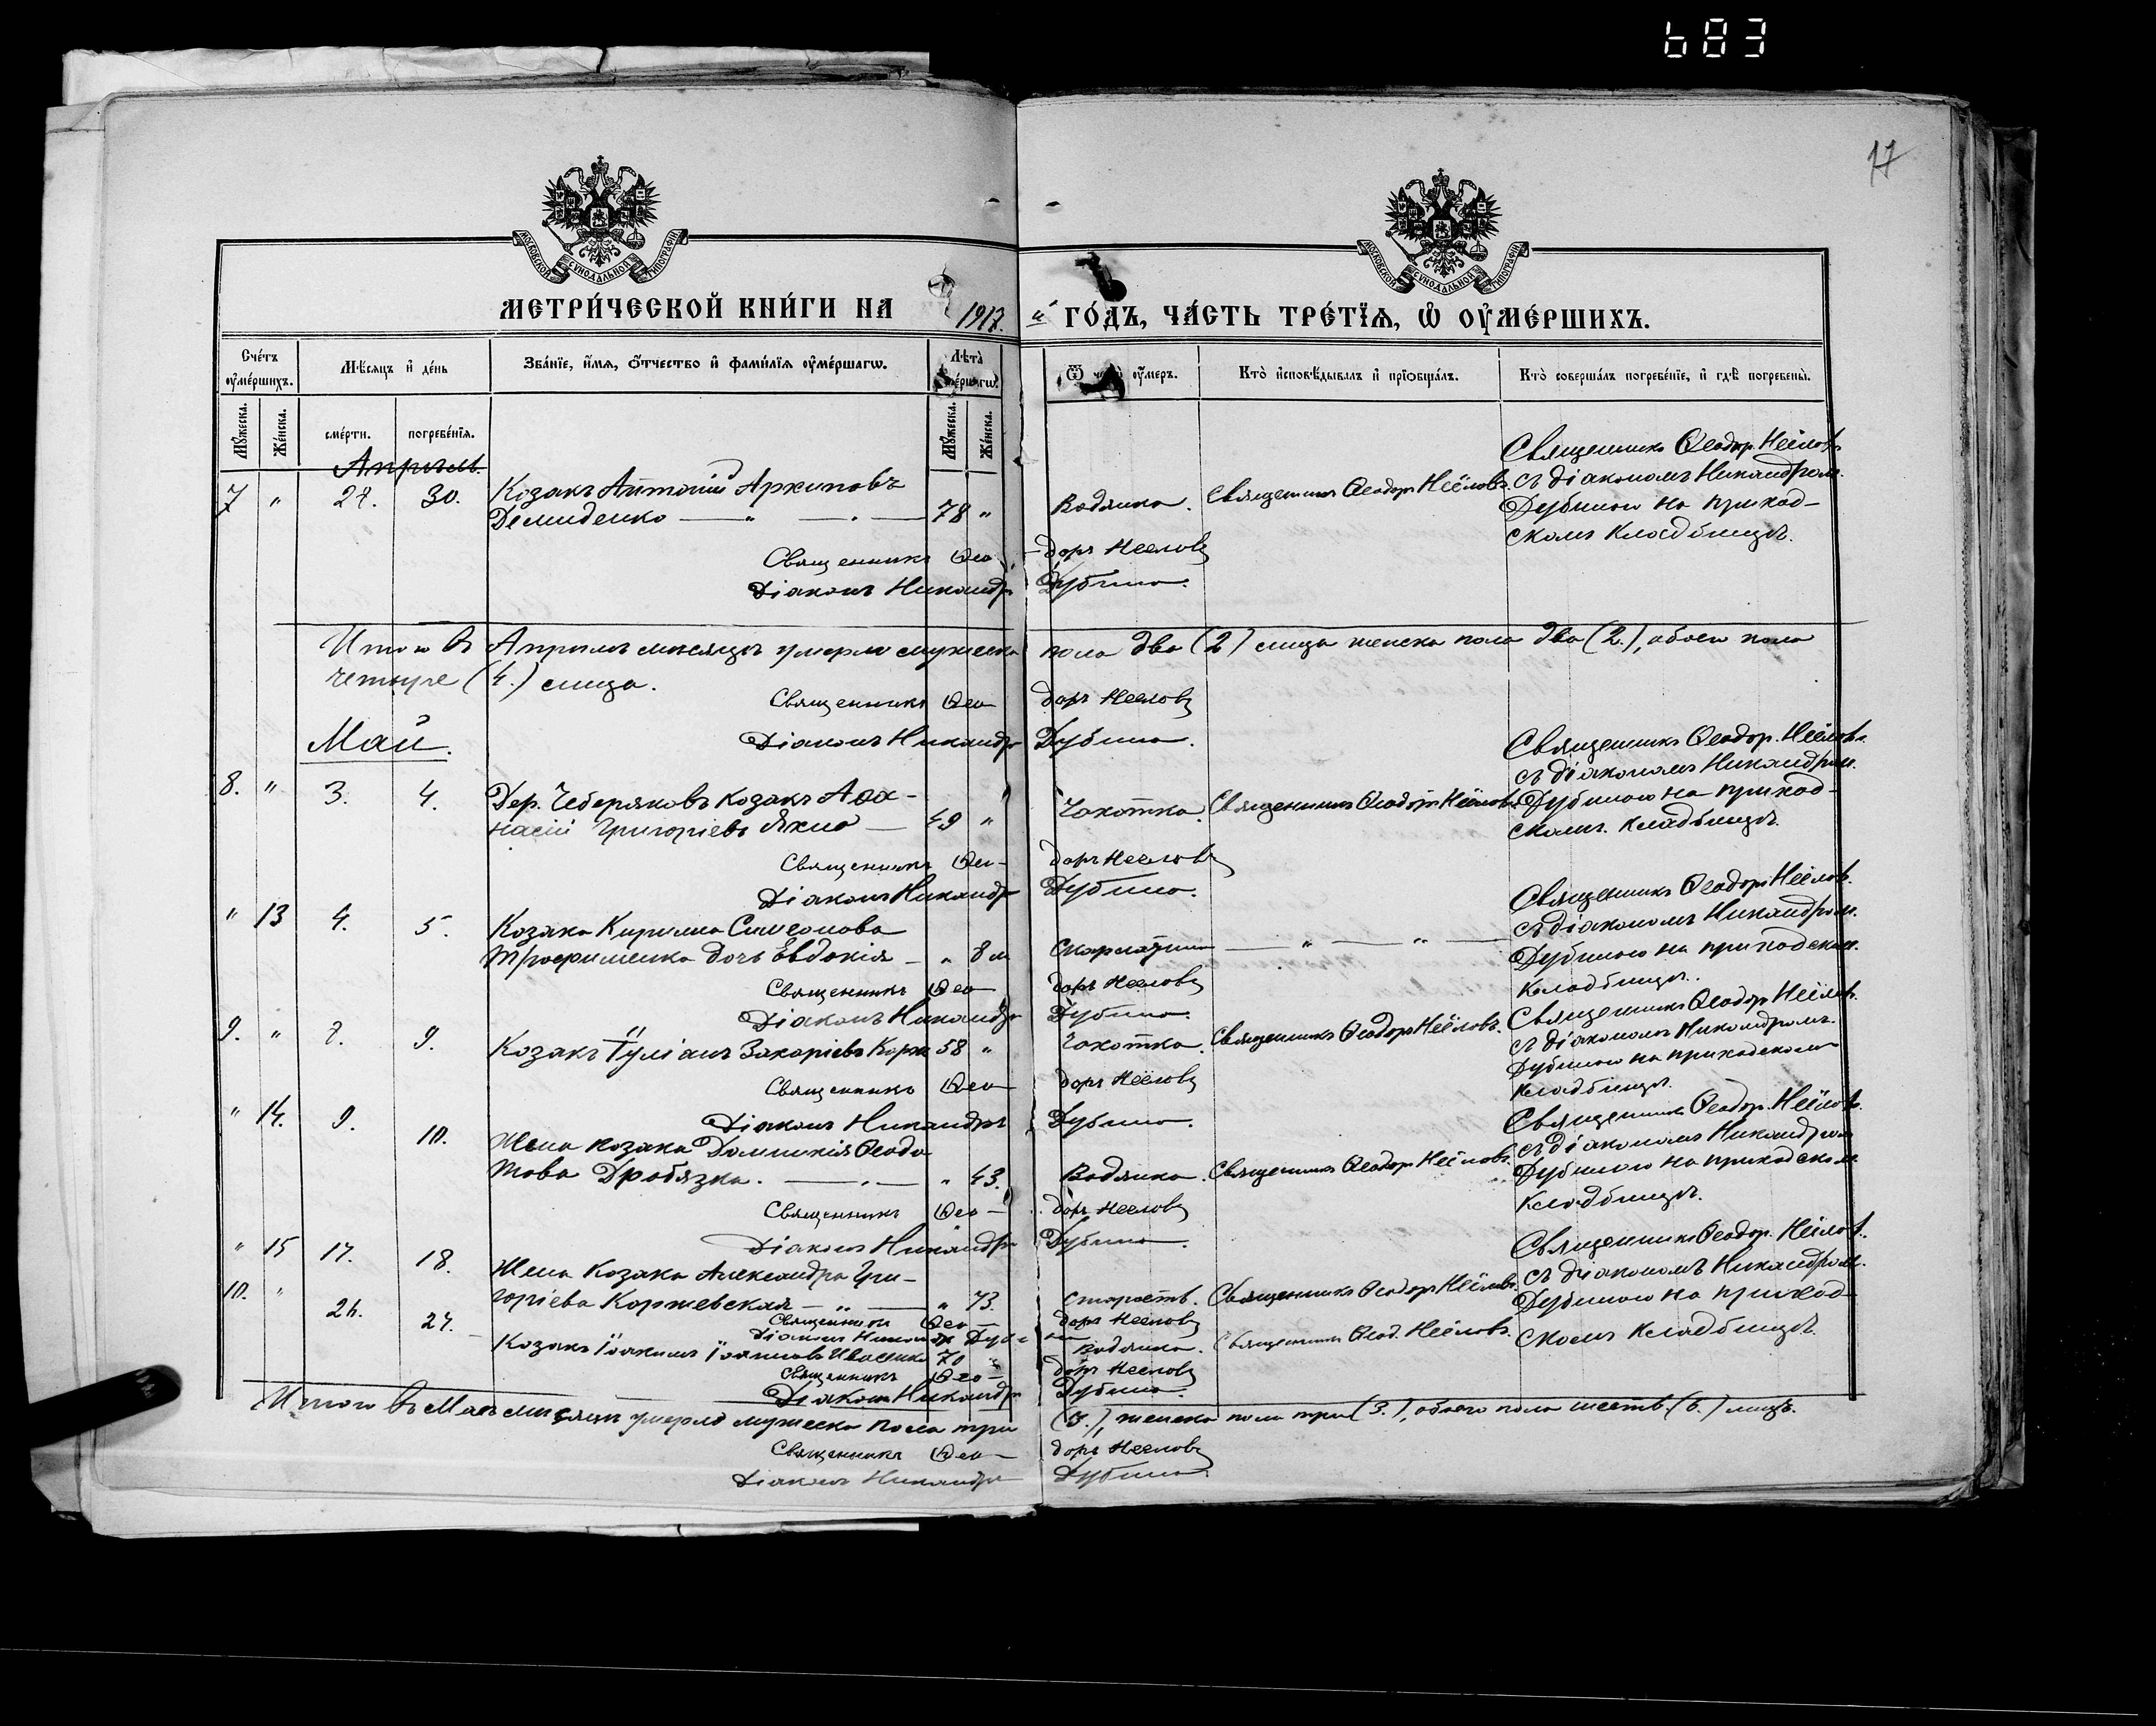 683
17
МОСКОВСКОЙ СѴНОДАЛЬНОЙ ТИПОГРАФІИ
МОСКОВСКОЙ СѴНОДАЛЬНОЙ ТИПОГРАФІИ
МЕТРИ́ЧЕСКОЙ КНИ́ГИ НА 1917 й ГО́ДЪ, ЧА́СТЬ ТРЕ́ТІѦ, Ѡ҆ ОУ҆МЕ́РШИХЪ.
Сче́тъ оу҆ме́ршихъ.
Мѣ́сяцъ и҆ де́нь
Зва́нїе, и҆́мѧ, ѻ҆́тчество и҆ фами́лїѧ оу҆ме́ршагѡ.
Лѣ́та
Ѿ оу҆́меръ.
Кто̀ и҆сповѣ́дывалъ и҆ прїѻбща́лъ.
Кто̀ соверша́лъ погребе́нїе, и҆ гдѣ̀ погребены̀.
Мꙋ́жеска. Же́нска.
сме́рти. погребе́нїѧ.
Мꙋ́жеска. Же́нска.
Апрѣль.
7 " 27. 30. Козакъ Антоній Архиповъ
Демиденко — " — 78 " Водянка. Священникъ Ѳеодоръ Неёловъ.
Священникъ Ѳеодор. Неёловъ
съ діакономъ Никандромъ
Дубиною на приход-
скомъ кладбищѣ.
Священникъ Ѳео-доръ Неёловъ
Діаконъ Никандръ Дубина.
Итого въ Апрѣлѣ мѣсяцѣ умерло мужеска пола два (2) лица женска пола два (2.), обоего пола
четыре (4.) лица.
Священникъ Ѳеодоръ Неёловъ
Діаконъ Никандръ Дубина.
Май.
8. " 3. 4. Дер. Чеберяковъ козакъ Аѳа-
насій Григоріевъ Яхно — 49 " Чахотка. Священникъ Ѳеодоръ Неёловъ.
Священникъ Ѳеодор. Неёловъ.
съ діакономъ Никандром.
Дубиною на приход-
скомъ кладбищѣ.
Священникъ Ѳео-доръ Неёловъ
Діаконъ Никандръ Дубина.
" 13 4. 5. Козака Кирилла Симеонова
Трофименка дочь Евдокія — " 8 м Скарлатина — " — " —
Священникъ Ѳеодоръ Неёлов.
съ діакономъ Никандром.
Дубиною на приходском.
кладбищѣ.
Священникъ Ѳеодоръ Неёловъ
Діаконъ Никандръ Дубина.
9. " 7. 9. Козакъ Іуліанъ Захаріевъ 58 " Чахотка. Священникъ Ѳеодоръ Неёловъ.
Священникъ Ѳеодор Неёлов.
съ діакономъ Никандромъ
Дубиною на приходском
кладбищѣ.
Священникъ Ѳеодоръ Неёловъ
Діаконъ Никандръ Дубина.
" 14. 9. 10. Жена козака Домникія Ѳеодо
това Дробязка. — " 43. Водянка. Священникъ Ѳеодоръ Неёловъ.
Священникъ Ѳеодор. Неёловъ.
съ діакономъ Никандром
Дубиною на приходском.
кладбищѣ.
Священникъ Ѳео-доръ Неёловъ
Діаконъ Никандръ Дубина.
" 15 17. 18. Жена козака Александра Гри-
горіева Коржевская — " — " 73. Старость. Священникъ Ѳеодоръ Неёловъ.
Священникъ Ѳеодор. Неёлов.
съ діакономъ Никандром.
Дубиною на приход-
скомъ кладбищѣ.
Священникъ Ѳео-доръ Неёловъ
Діаконъ Никандръ Дубина
10. " 24. Козакъ Іоакимъ Іоанновъ Иваненко 70 Водянка. Священникъ Ѳеод. Неёловъ.
Священникъ Ѳео-доръ Неёловъ
Діаконъ Никандръ Дубина.
Итого въ Маѣ мѣсяцѣ умерло мужеска пола три (3.), женска пола три (3.), обоего пола шесть (6.) лицъ.
Священникъ Ѳео-доръ Неёловъ
Діаконъ Никандръ Дубина